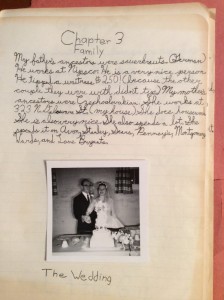 Chapter 3
Family
My father's ancestors were (German)
He works at He is a very nice person.
He tipped a waitress $2.50! (because the other
couple they were with didn't tip) My mother's
ancestors were Czechoslovakian. She works at
323 N. St. (my house) She does housework.
She is also very nice. She also spends a lot. She
spends it on Avon, Stanley, Sears, Penneys, Montgomery
Wards, and Lane Bryants.
The Wedding